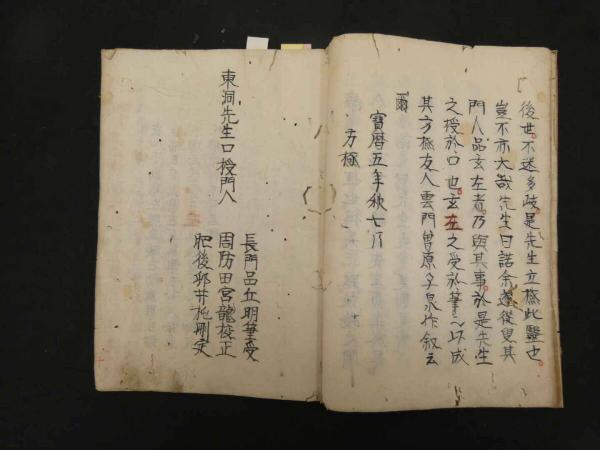 後世不迷多岐是先生立極此醫也
豈不亦大哉先生曰諾余遂從叟其
門人品玄左者乃與其事於是先生
之授於口也玄左之受於筆〻以成
其方極友人雲門曽原子泉作叙云
爾
寶暦五年秋七月
方極
東洞先生口授門人
長門品丘明筆受
周防田宮龍校正
肥後邨井杶刪定